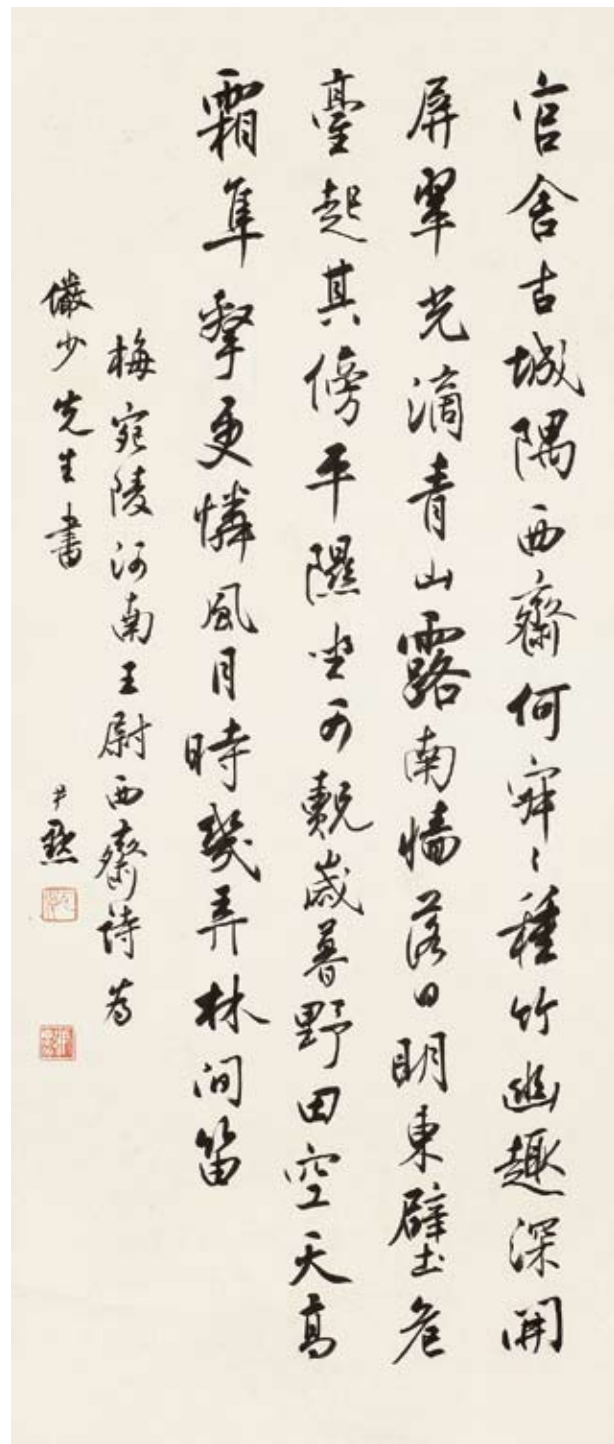 官舍古城隅西齋何寂〻種竹幽趣深開
屏翠光滴青山露南墻落日明東壁危
臺起其傍平隰坐可觀歲暮野田空天高
霜隼擊更憐風月時幾弄林間笛
梅宛陵河南王尉西齋詩為
儼少先生書
尹默